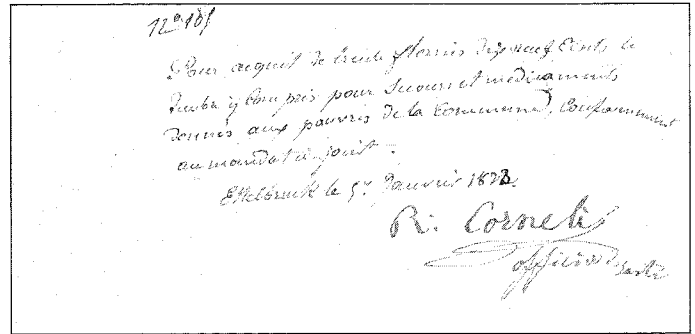 N° 101
Pour acquit de trente florins dix neuf Cents le
timbre y Compris pour Secours et médicaments
donnés aux pauvres de la Commune, Conformement
au mandat ci-joint.
Ettelbruck le 5. Janvier 1823.
R. Corneli
officier de santé